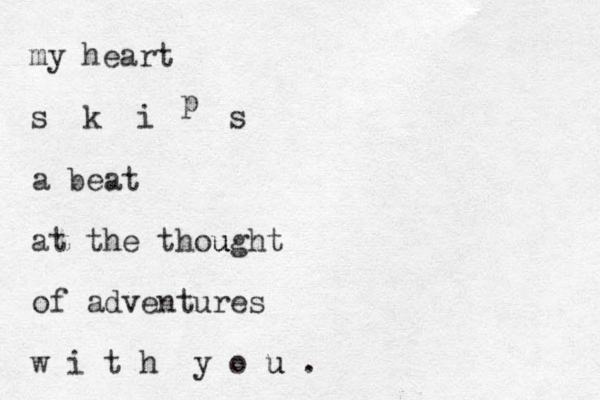 my heart
s k i p s
a beat
at the thought
of adventures
w i t h y o u .